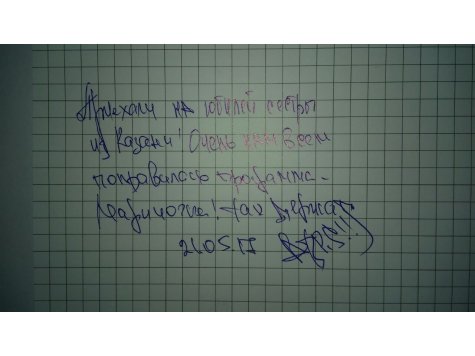 Приехали на юбилей сестры
из Казани! Очень нам всем
понравилось программа.
Так держа
21.05.17